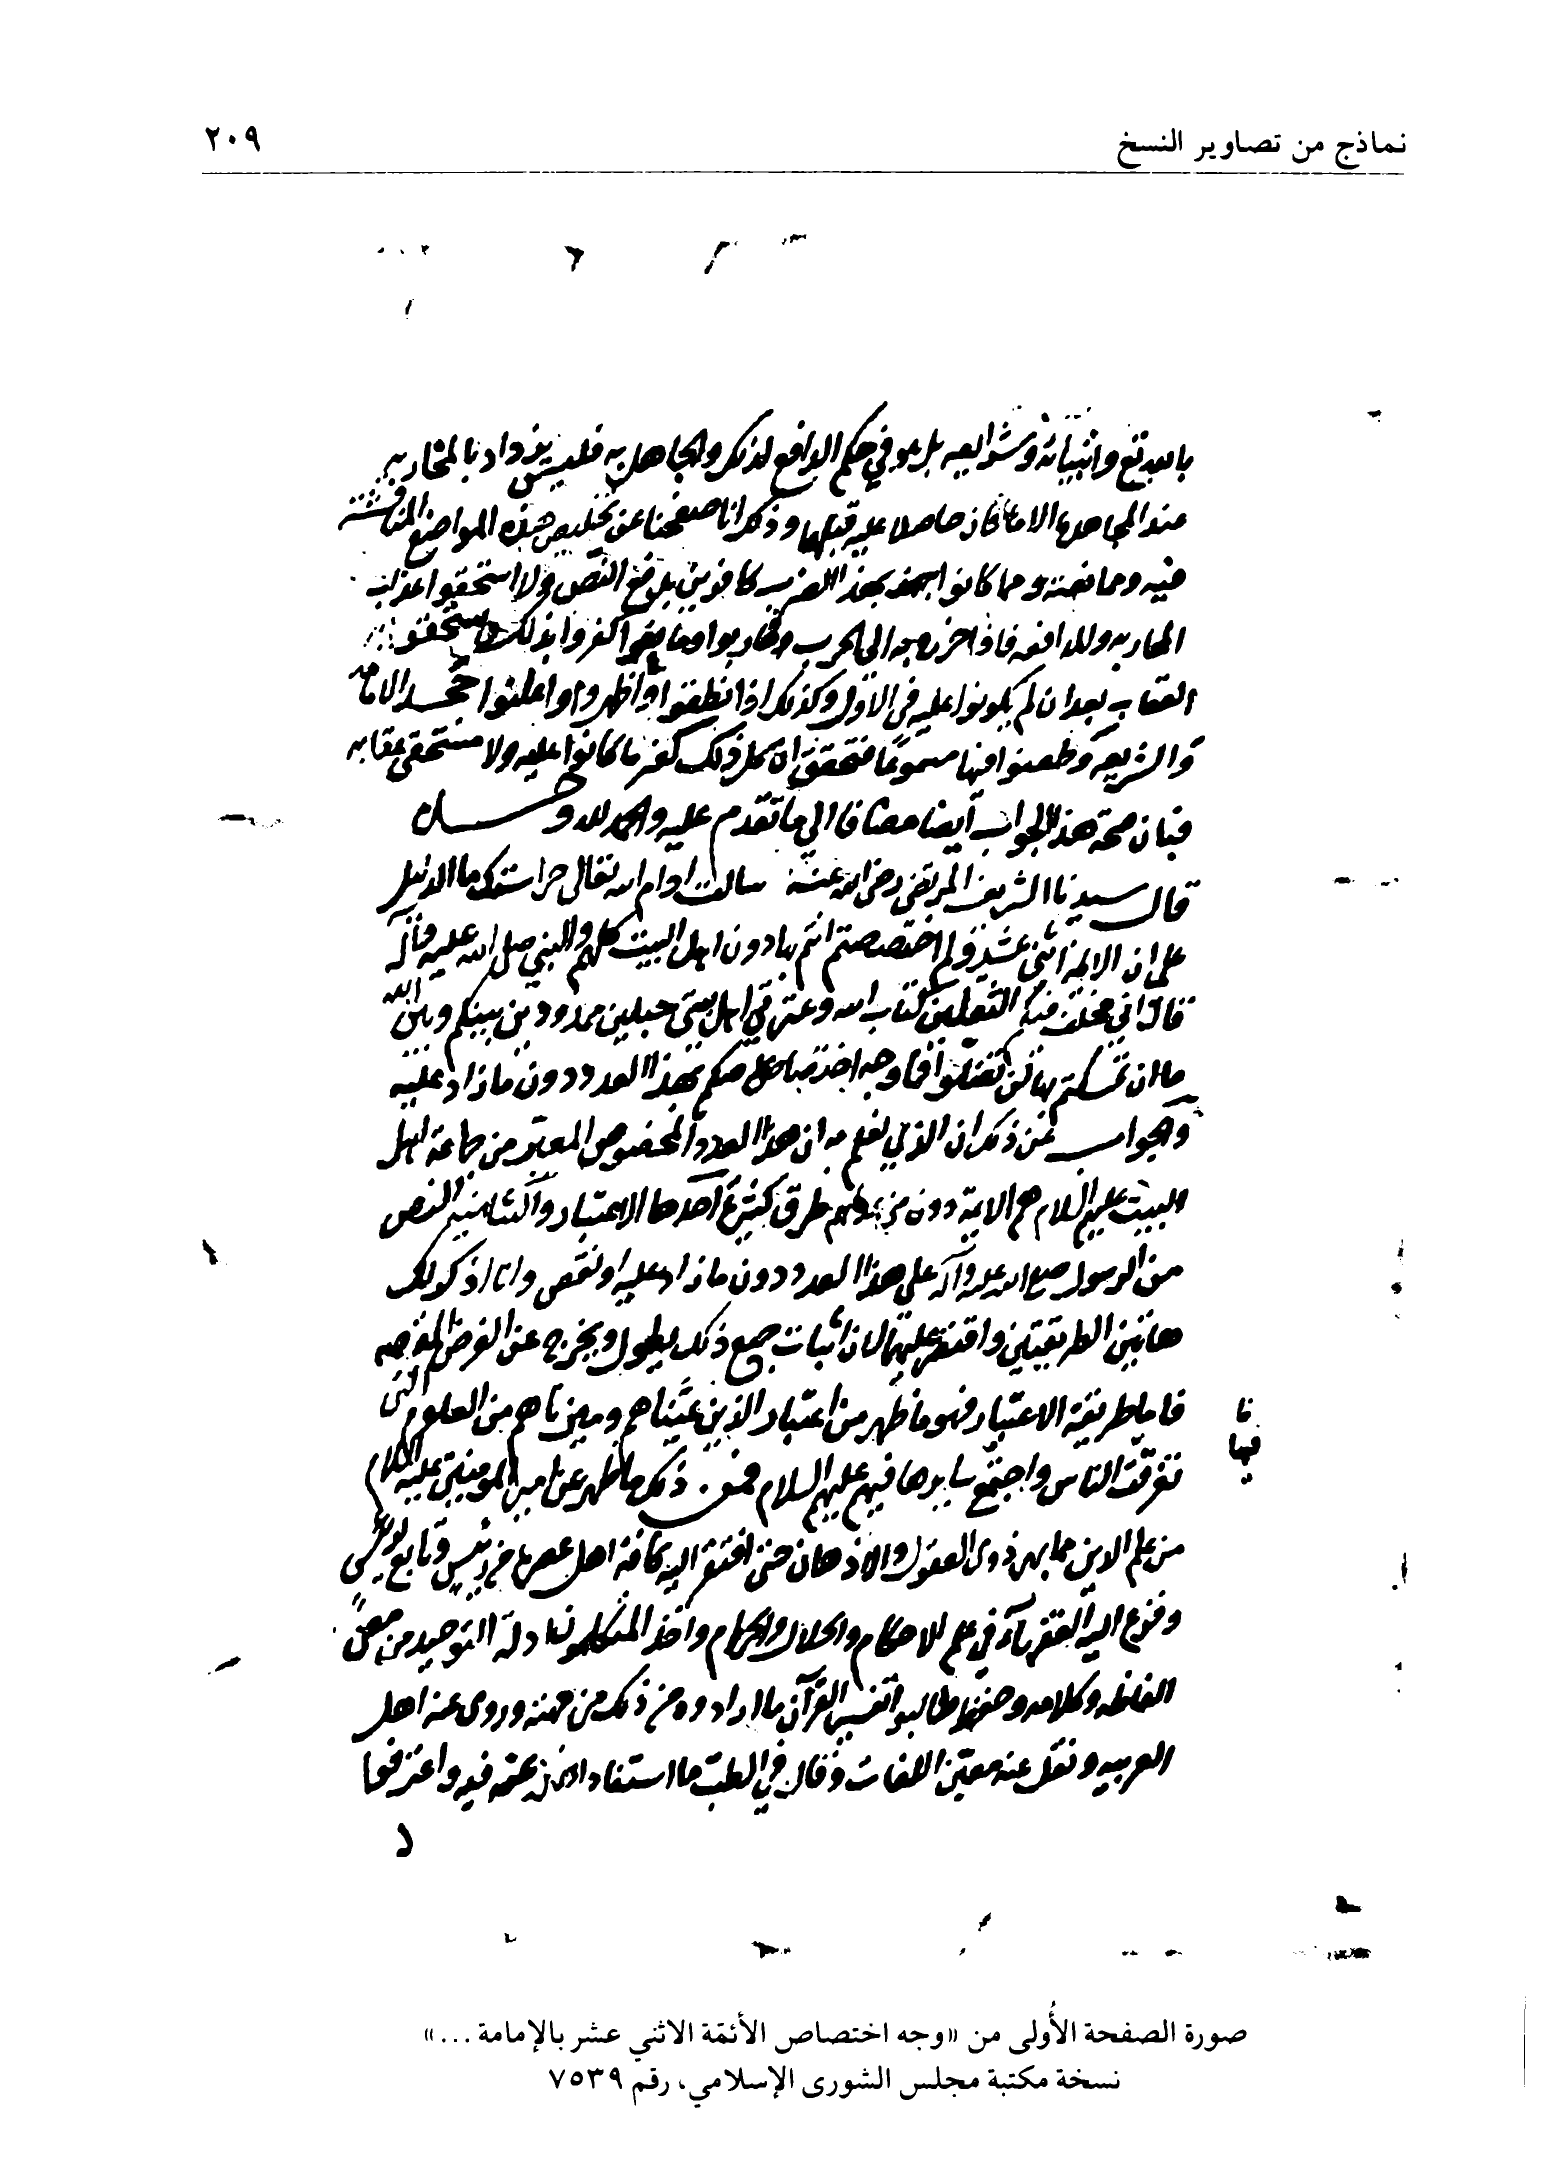 نماذج من تصاوير النسخ
٢٠٩
بالله تع وانبيائه وشرايعه بل هو في حكم الدافع لذلك والجاهل به فليس يزداد بالمحاربه
عند المجاهدة الاما كان حاصلا عليه قبلها وذكرانا صفحنا عن تخليص هذه المواضع المناقشة
فيه وممانعته وما كانوا بهذا الضرب كافرين بدفع النص ولا استحقوا عذاب
المحاربه والمدافعه فاذا خرجوا الى الحرب وحاربوا ومانعوا كفروا بذلك واستحقوا
العقاب بعد ان لم يكونوا عليه في الاول وكذلك اذا نطقوا واظهروا واعلنوا جحد الامامه
والشريعه وطعنوا فيها مسموعا فتحقق ان كل ذلك كفر ما كانوا عليه ولا مستحقي عقابه
فبان صحة هذا الجواب ايضا مضافا الي ما تقدم عليه والحمد لله وحده
قال سيدنا الشريف المرتضى رضي الله عنه سالت ادام الله تعالى حراستك ما الدليل
على ان الائمة اثنى عشر ولم اختصصتم انتم بها دون اهل البيت كلهم والنبي صلى الله عليه وآله
قال اني مخلف فيكم الثقلين كتاب الله وعترتي اهل بيتي حبلين ممدودين بينكم وبين الله
ما ان تمسكتم بها لن تضلوا فما وجه اختصاصكم بهذا العدد دون ما زاد عليه
والجواب عن ذلك ان الذي نعلم به ان هذا العدد المخصوص المعتبر من جماعة اهل
البيت عليهم السلام هم الايمة دون غيرهم طرق كثيرة احدها الاعتبار والثانيه النص
من الرسول صلى الله عليه وآله على هذا العدد دون ما زاد عليه او نقص وانا اذكر لك
هاتين الطريقتين واقتصر عليهما لان اثبات جميع ذلك يطول ويخرج عن الغرض
فاما طريقة الاعتبار فهو ما ظهر من اعتبار الذين عيّناهم وميزناهم من العلوم التي
تفرقت في الناس واجتمع سايرها فيهم عليهم السلام فمن ذلك ما ظهر عن امير المومنين عليه السلام
من علم الدين مما بهر ذوى العقول والاذهان حتى افتقر اليه كافة اهل عصره من رئيس وتابع
وفزع اليه الفقهآء في علم الاحكام والحلال والحرام واخذ المتكلمون ادلة التوحيد من
الفاظه وكلامه وحفظ طالبوا تفسير القرآن ما ارادوه من ذلك من جهته وروى عنه اهل
العربيه ونقل عنه اللغات وقال في الطب ما استفاده فيه واعترفوا
صورة الصفحة الأُولى من «وجه اختصاص الأئمّة الاثني عشر بالإمامة ...»
نسخة مكتبة مجلس الشورى الإسلامي، رقم ٧٥٣٩